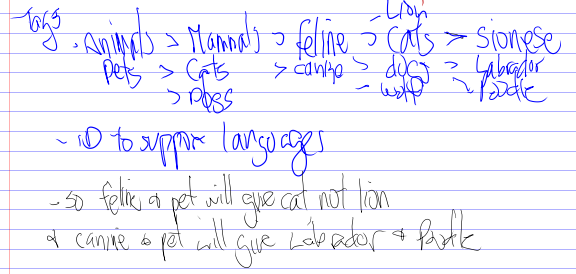 - Lion
- Tags
. Animals > Mammals > feline > Cats > Sionese
Pets > Cats > canine > dogs > Labrador
> Dogs - wolf > Poodle
- ID to support languages
- so feline & pet will give cat not lion
& canine & pet will give Labrador & Poodle